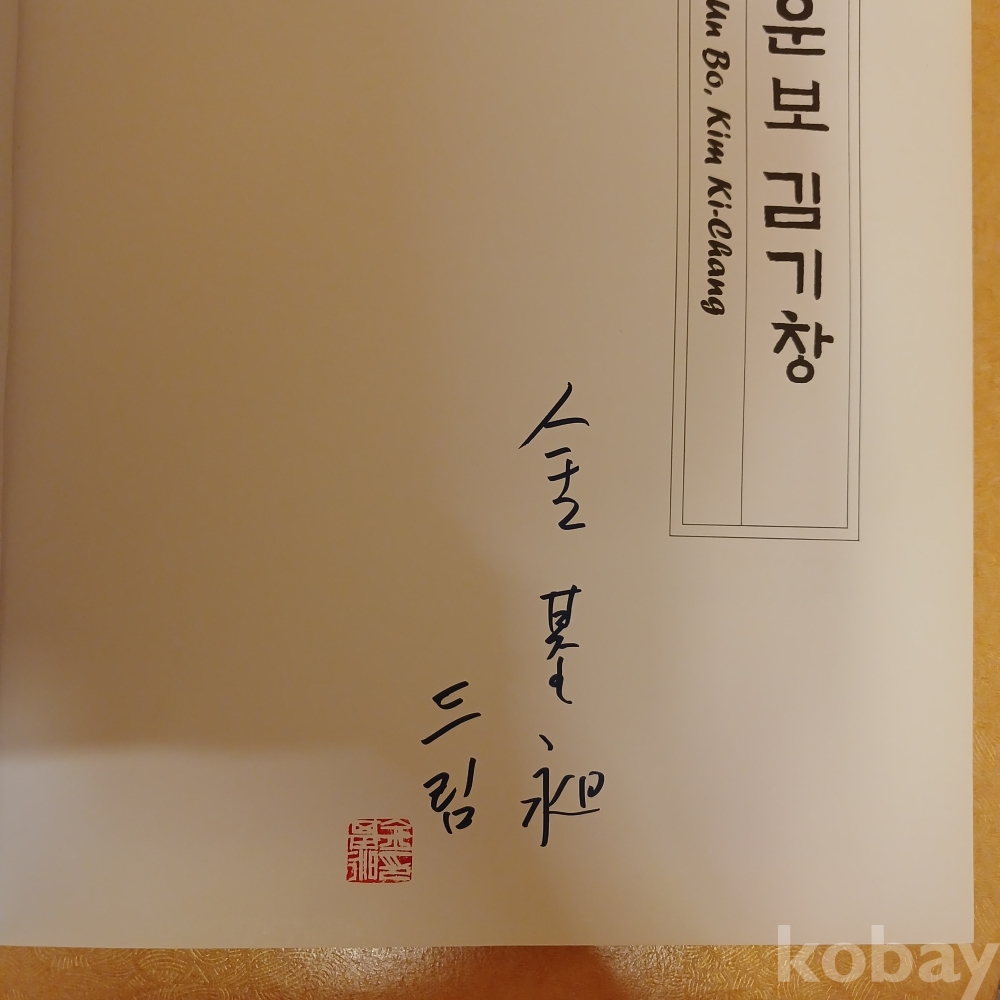 운보 김기창
Un Bo, Kim Ki-Chang
金基昶
드림
kobay